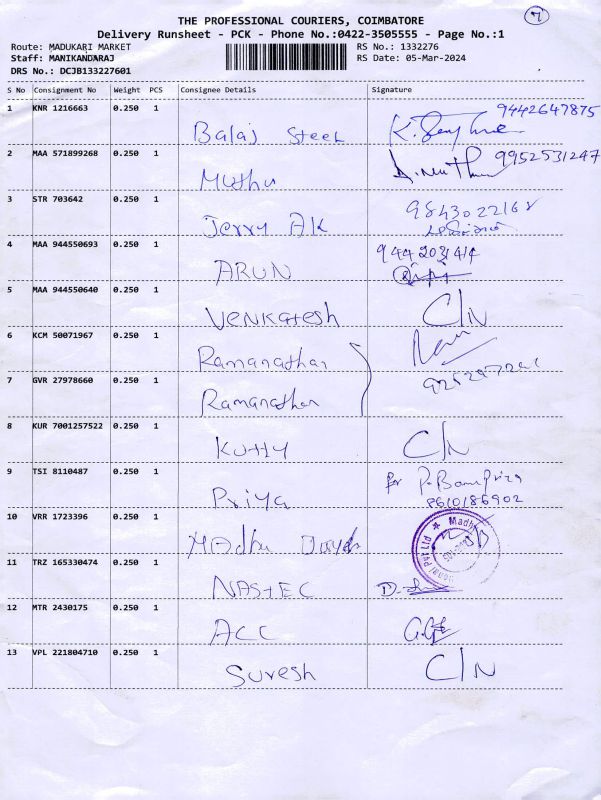 7
THE PROFESSIONAL COURIERS, COIMBATORE
Delivery Runsheet - PCK - Phone No.:0422-3505555 - Page No.:1
Route: MADUKARI MARKET RS No.: 1332276
Staff: MANIKANDARAJ RS Date: 05-Mar-2024
DRS No.: DCJB133227601
S No Consignment No Weight PCS Consignee Details Signature
1 KNR 1216663 0.250 1 Balaj Steel 9442647875
2 MAA 571899268 0.250 1 Muthu 9952531247
3 STR 703642 0.250 1 Jerry AK 9843022168
4 MAA 944550693 0.250 1 ARUN
5 MAA 944550640 0.250 1 Venkatesh C/N
6 KCM 50071967 0.250 1 Ramanathan
7 GVR 27978660 0.250 1 Ramanathan
8 KUR 7001257522 0.250 1 Kutty C/N
9 TSI 8110487 0.250 1 Priya for
8610186902
10 VRR 1723396 0.250 1 Madhu
11 TRZ 165330474 0.250 1 NASTEC
12 MTR 2430175 0.250 1 ACC
13 VPL 221804710 0.250 1 Suresh C/N